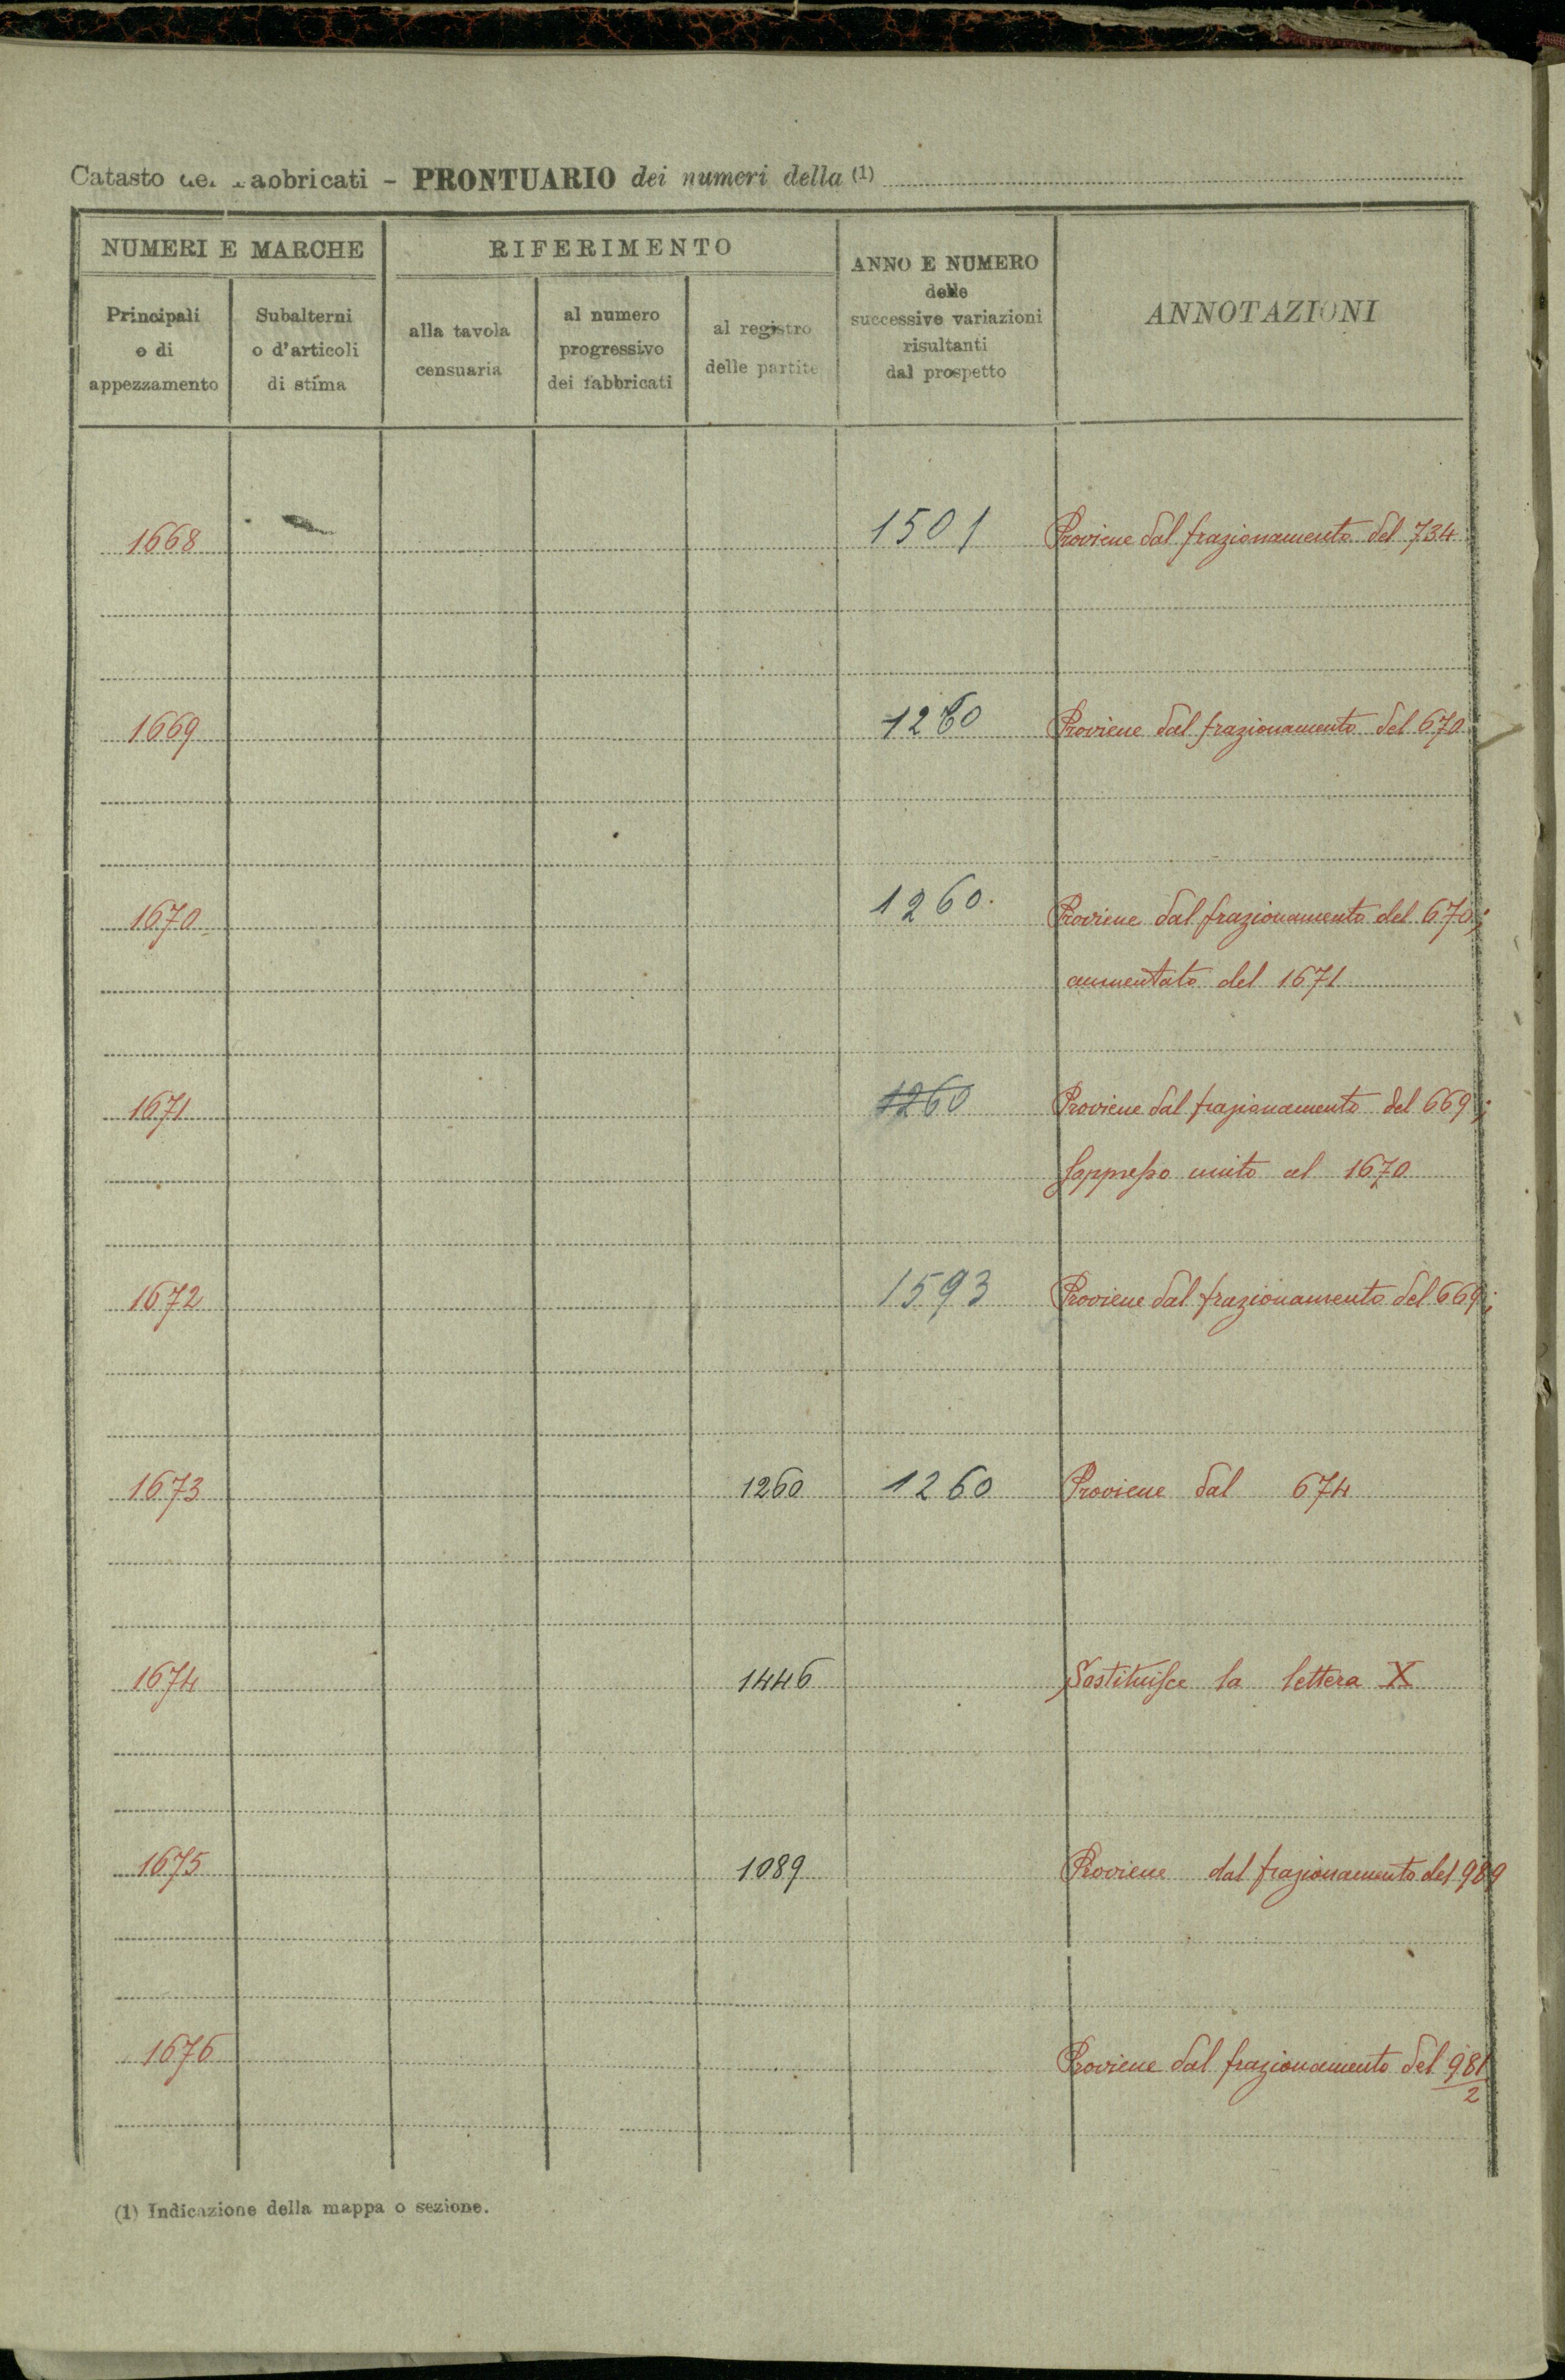 Catasto dei Fabbricati - PRONTUARIO dei numeri della (1)
NUMERI E MARCHE
RIFERIMENTO
ANNO E NUMERO
delle
successive variazioni
risultanti
dal prospetto
ANNOTAZIONI
Principali
o di
appezzamento
Subalterni
o d'articoli
di stima
alla tavola
censuaria
al numero
progressivo
dei fabbricati
al registro
delle partite
1668 1501 Proviene dal frazionamento del 734
1669 1260 Proviene dal frazionamento del 670
1670 1260. Proviene dal frazionamento del 670;
aumentato del 1671
1671 1260 Proviene dal frazionamento del 669;
soppresso unito al 1670
1672 1593 Proviene dal frazionamento del 669;
1673 1260 1260 Proviene dal 674
1674 1446 Sostituisce la lettera X
1675 1089 Proviene dal frazionamento del 989
1676 Proviene dal frazionamento del 981/2
(1) Indicazione della mappa o sezione.